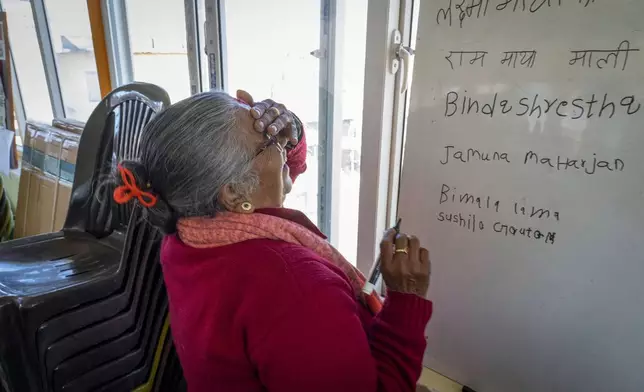 लक्ष्मी माया
राम माया माली
Bindashrestha
Jamuna maharjan
Bimala lama
sushila